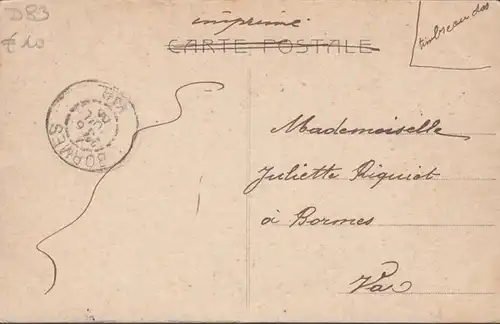 D83
£10
imprimé
CARTE POSTALE
timbre au dos
BORMES
VAR
Mademoiselle
Juliette Riquiet
à Bormes
Var